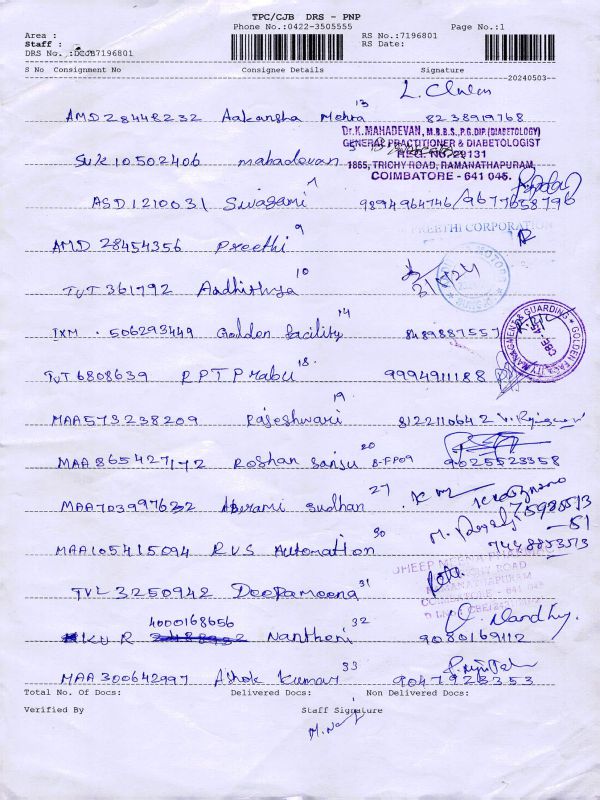 TPC/CJB DRS - PNP
Phone No.:0422-3505555
Area :
Staff :
DRS No.:DCJB7196801
RS No.:7196801
RS Date:
Page No.:1
S No Consignment No Consignee Details Signature
20240503
AMD28448232 Aakansha Mehra 13 8238919768
SUR10502406 mahadevan 5
Dr.K. MAHADEVAN, M.B.B.S.,P.G.DIP.(DIABETOLOGY)
GENERAL PRACTITIONER & DIABETOLOGIST
REG. NO. 29131
1865, TRICHY ROAD, RAMANATHAPURAM,
COIMBATORE - 641 045.
ASD1210031 Sivasami 7 9894964746/9677658796
PREETHI CORPORATION
AMD 28454356 Preethi 9
TVT361792 Aadhithya 10
IXM . 506293449 Golden facility 14 8489887557
GOLDEN FACILITY MANAGMENT & GUARDING
CBE
TVT6808639 RPT Prabu 18 9994911188
MAA573238209 Rajeshwari 19 8122110642
MAA865427172 Roshan Sanju 20 B-FF09 9025523358
MAA703997632 Abirami Sudhan 27
MAA105415094 RVS Automation 30 7448883513
TRICHY ROAD
RAMANATHAPURAM
COIMBATORE - 641
TVL3250942 Deepameena 31
4000168656
KUR Nantheni 32 9080169112
MAA300642997 Ashok Kumar 33 9047923353
Total No. Of Docs: Delivered Docs: Non Delivered Docs:
Verified By Staff Signature